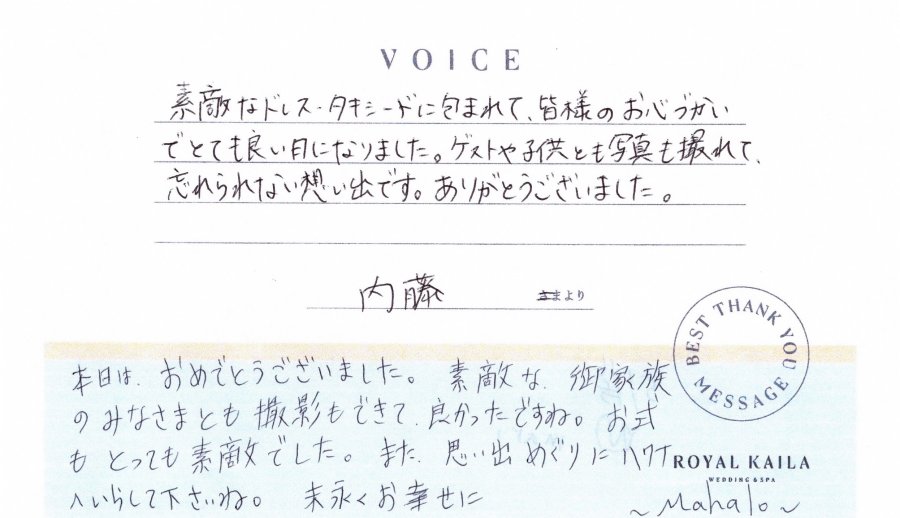 VOICE
素敵なドレス・タキシードに包まれて、皆様のお心づかい
でとても良い日になりました。ゲストや子供とも写真も撮れて、
忘れられない想い出です。ありがとうございました。
内藤 さまより
BEST THANK YOU MESSAGE
本日は、おめでとうございました。素敵な、御家族
のみなさまとも撮影もできて、良かったですね。お式
も とっても素敵でした。また、思い出めぐりにハワイ
へいらして下さいね。 末永くお幸せに
ROYAL KAILA
WEDDING & SPA
～Mahalo～